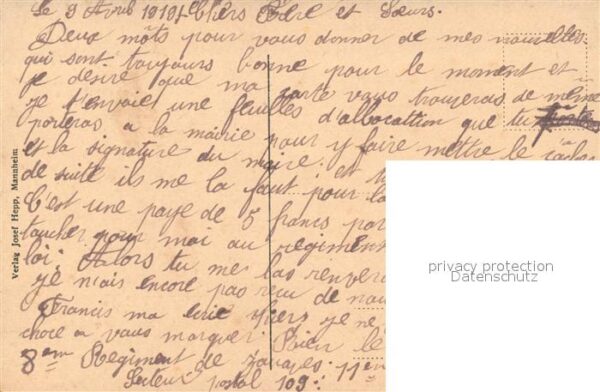 Le 9 Avril 1919 Chers Frère et Sœurs.
Deux môts pour vous donner de mes nouvelles
qui sont toujours bonne pour le moment et
je désire que ma carte vous trouveras de même
je t'envoie une feuilles d'allocattion que tu
porteras a la mairie pour y faire mettre le
et la signature du maire. et
de suite ils me la faut pour la
C'est une paye de 5 francs par
toucher pour mai au régiment
loi. Alors tu me las renverra
je nais encore pas reçu de
Francis ma hiers je ne
chose a vous marquer. Rien le
8em Régiment de zouaves. 11em
Secteur postal 109.
Verlag Josef Hepp, Mannheim
privacy protection
Datenschutz